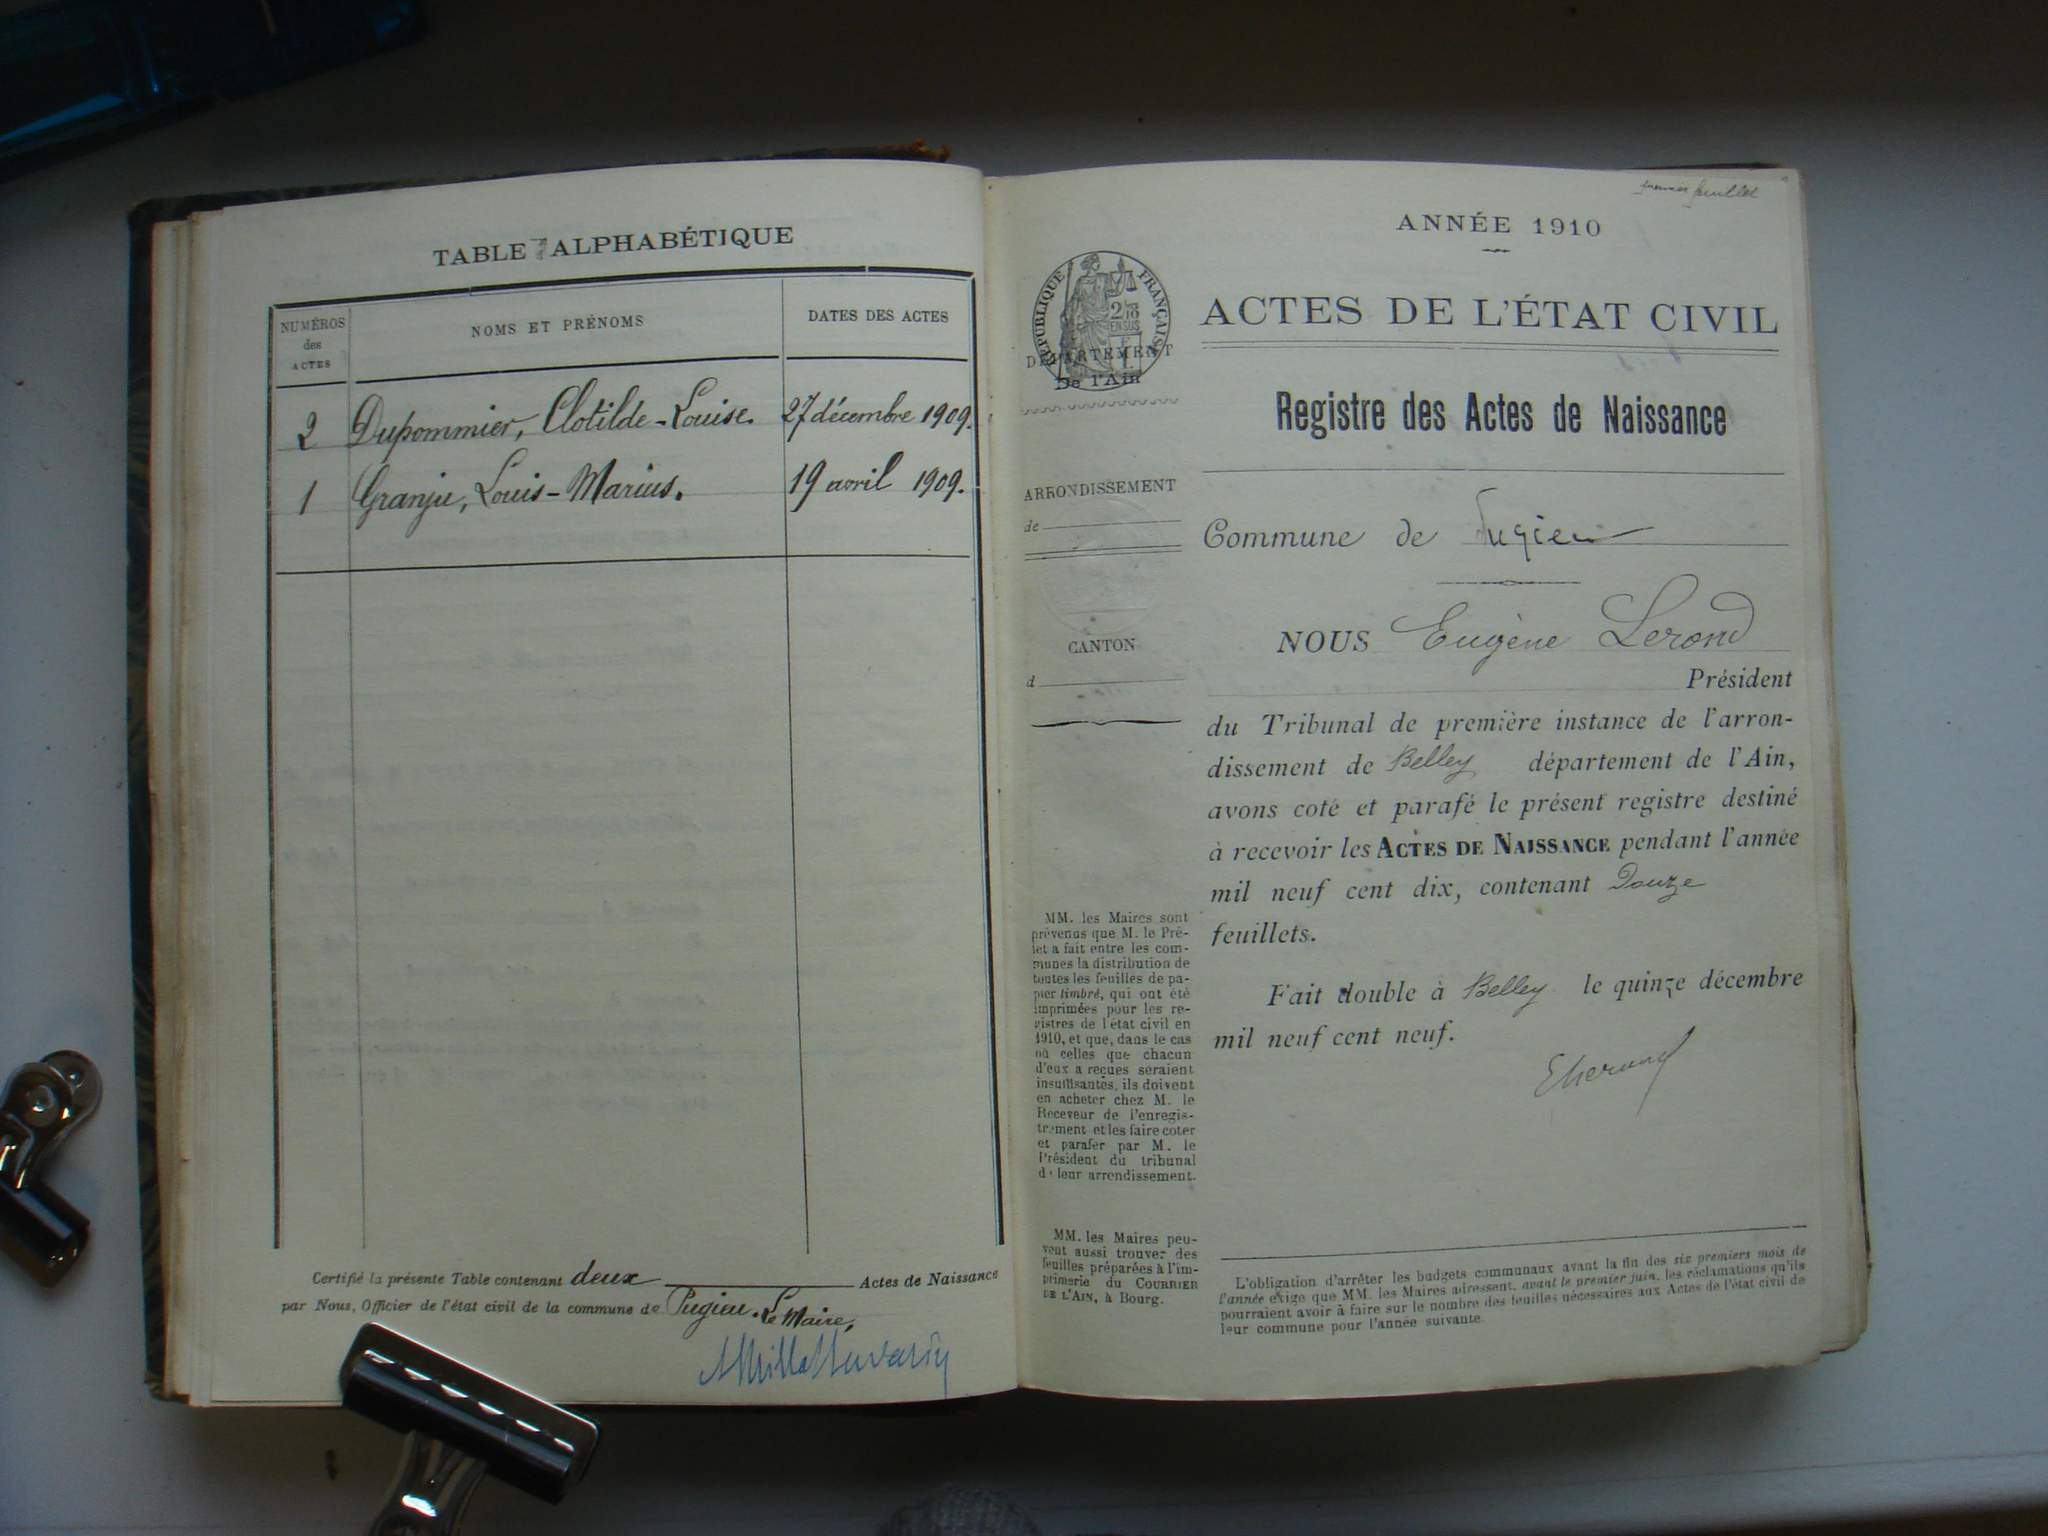 TABLE ALPHABÉTIQUE
NUMÉROS
des
ACTES
NOMS ET PRÉNOMS
DATES DES ACTES
2 Dupommier, Clotilde-Louise. 27 décembre 1909.
1 Granju, Louis-Marius. 19 avril 1909.
Certifié la présente Table contenant deux Actes de Naissance
par Nous, Officier de l'état civil de la commune de Pugieu. Le Maire,
premier feuillet
ANNÉE 1910
RÉPUBLIQUE FRANÇAISE
2/10
EN SUS
DÉPARTEMENT
De l'Ain
ACTES DE L'ÉTAT CIVIL
Registre des Actes de Naissance
ARRONDISSEMENT
de
CANTON
d
Commune de Pugieu
NOUS Eugène Lerond
Président
du Tribunal de première instance de l'arron-
dissement de Belley département de l'Ain,
avons coté et parafé le présent registre destiné
à recevoir les ACTES DE NAISSANCE pendant l'année
mil neuf cent dix, contenant Douze
feuillets.
Fait double à Belley le quinze décembre
mil neuf cent neuf.
MM. les Maires sont
prévenus que M. le Pré-
fet a fait entre les com-
munes la distribution de
toutes les feuilles de pa-
pier timbré, qui ont été
imprimées pour les re-
gistres de l'état civil en
1910, et que, dans le cas
où celles que chacun
d'eux a reçues seraient
insuffisantes, ils doivent
en acheter chez M. le
Receveur de l'enregis-
trement et les faire coter
et parafer par M. le
Président du tribunal
de leur arrondissement.
MM. les Maires peu-
vent aussi trouver des
feuilles préparées à l'im-
primerie du COURRIER
DE L'AIN, à Bourg.
L'obligation d'arrêter les budgets communaux avant la fin des six premiers mois de
l'année exige que MM. les Maires adressent, avant le premier juin, les réclamations qu'ils
pourraient avoir à faire sur le nombre des feuilles nécessaires aux Actes de l'état civil de
leur commune pour l'année suivante.